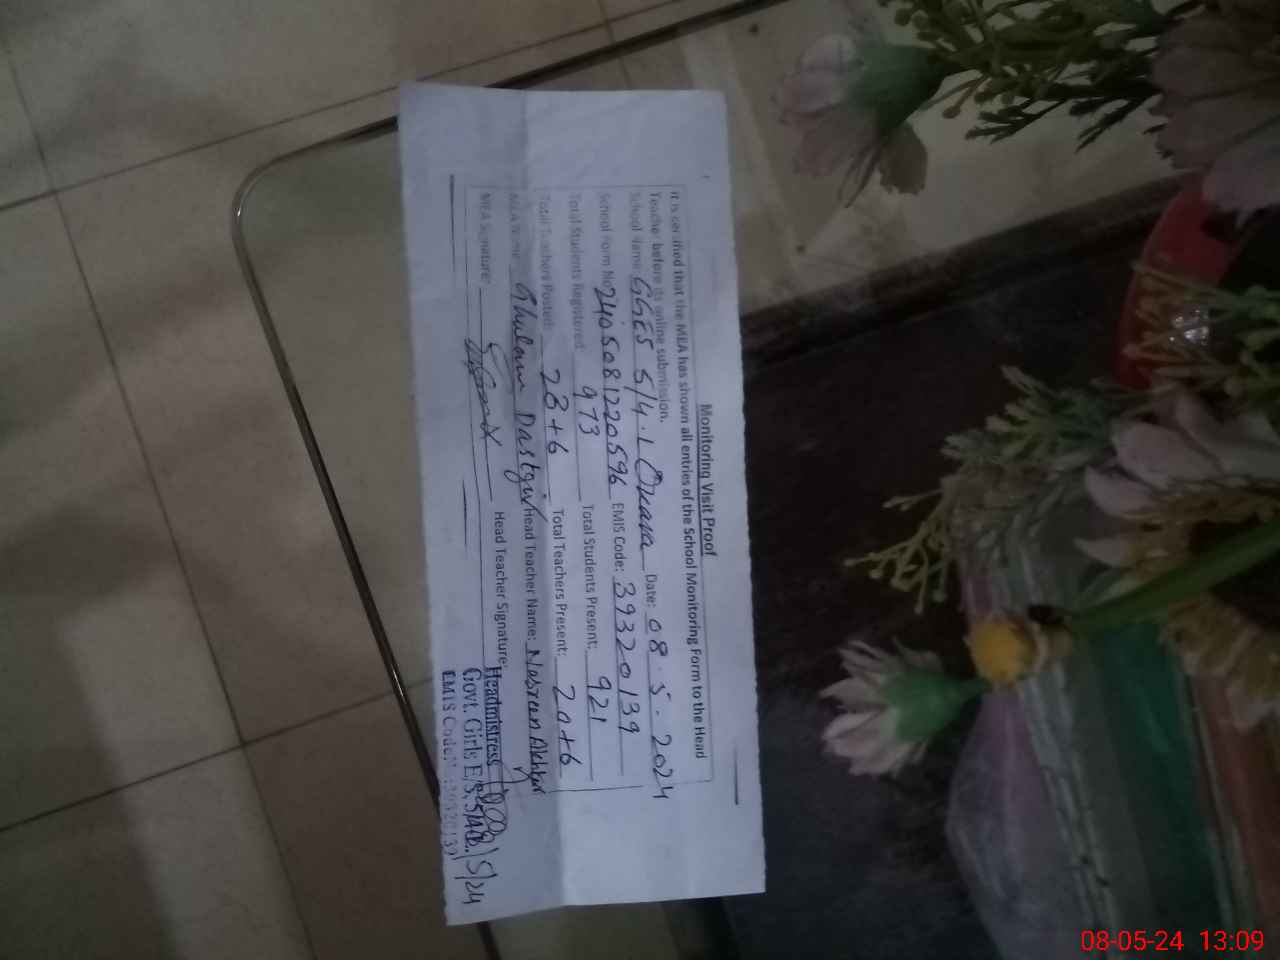 Monitoring Visit Proof
It is certified that the MEA has shown all entries of the School Monitoring Form to the Head
Teacher before its online submission.
School Name: GGES 5/4.L Okara Date: 08.5.2024
School Form No 240508122059​6 EMIS Code: 39320139
Total Students Registered: 973 Total Students Present: 921
Total Teachers Posted: 28+6 Total Teachers Present: 20+6
MEA Name: Ghulam Dastgir Head Teacher Name: Nasreen Akhtar
MEA Signature: Head Teacher Signature:
Headmistress
Govt. Girls E/S, 5/4.L
EMIS Code: 39320139
08-05-24 13:09